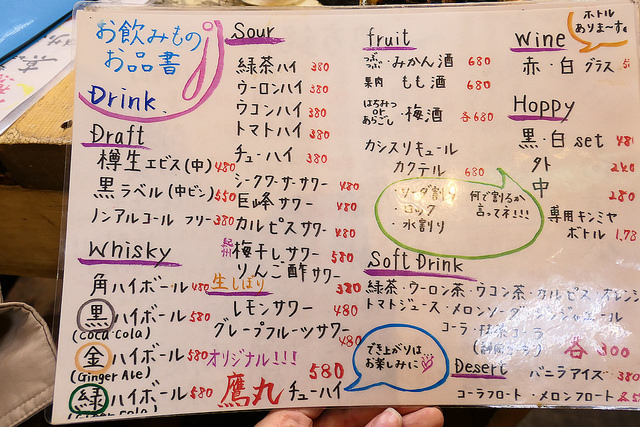 お飲みもの
お品書
Drink
Draft
樽生ヱビス(中) 480
黒ラベル(中ビン) 550
ノンアルコール フリー 380
Whisky
角ハイボール 480
黒ハイボール 580
(coca cola)
金ハイボール 580
(Ginger Ale)
緑ハイボール 580
Sour
緑茶ハイ 380
ウーロンハイ 380
ウコンハイ 380
トマトハイ 380
チューハイ 380
シークワーサーサワー 480
巨峰サワー 480
カルピスサワー 480
紀州 梅干しサワー 580
りんご酢サワー 380
生しぼり
レモンサワー 480
グレープフルーツサワー 480
オリジナル!!!
鷹丸チューハイ 580
でき上がりは
お楽しみに
fruit
つぶつぶ みかん酒 680
果肉 もも酒 680
はちみつ or あらごし ・梅酒 各680
カシスリキュール
カクテル 680
・ソーダ割り
・ロック
・水割り
何で割るか
言ってネ!!!
Wine
ボトル
ありま〜す。
赤・白 グラス
Hoppy
黒・白 set 480
外 240
中 280
専用キンミヤ
ボトル 1,78
Soft Drink
緑茶・ウーロン茶・ウコン茶・カルピス・オレンジ
トマトジュース・メロンソーダ・ジンジャエール
コーラ・
各300
Desert
バニラアイス 380
コーラフロート・メロンフロート